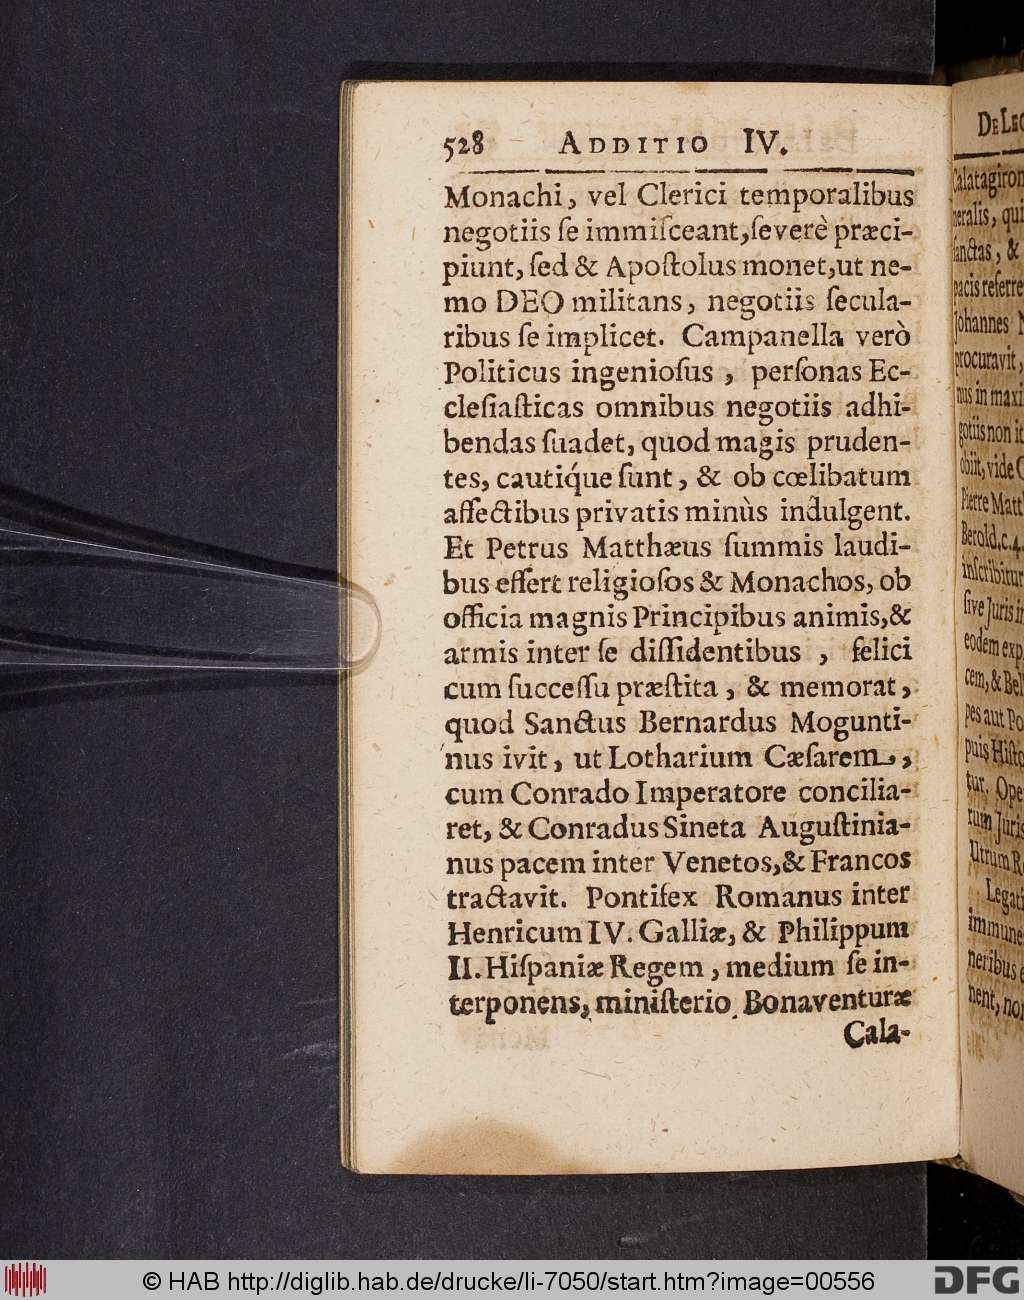 528 ADDITIO IV.
Monachi, vel Clerici temporalibus
negotiis ſe immiſceant,ſeverè præci-
piunt, ſed & Apoſtolus monet,ut ne-
mo DEO militans, negotiis ſecula-
ribus ſe implicet. Campanella verò
Politicus ingenioſus , perſonas Ec-
cleſiaſticas omnibus negotiis adhi-
bendas ſuadet, quod magis pruden-
tes, cautiq́ue ſunt, & ob cœlibatum
affectibus privatis minùs indulgent.
Et Petrus Matthæus ſummis laudi-
bus effert religioſos & Monachos, ob
officia magnis Principibus animis,&
armis inter ſe diſſidentibus , felici
cum ſucceſſu præſtita , & memorat,
quod Sanctus Bernardus Mogunti-
nus ivit, ut Lotharium Cæſarem,
cum Conrado Imperatore concilia-
ret, & Conradus Sineta Auguſtinia-
nus pacem inter Venetos,& Francos
tractavit. Pontifex Romanus inter
Henricum IV. Galliæ, & Philippum
II. Hiſpaniæ Regem , medium ſe in-
terponens, miniſterio Bonaventuræ
Cala-
DE LEG
Calatagiron
neralis, qui
ſanctas, &
pacis referre
Johannes
procuravit,
nus in maxi
gotiis non it
obiit, vide
Pierre Matt
Berold.c.4.
inſcribitur
ſive Juris in
eodem exp
cem, & Bel
pes aut Po
puis Hiſto
tur. Ope
rum Juris
Utrum R
Legati
immune
neribus
nent, no
© HAB http://diglib.hab.de/drucke/li-7050/start.htm?image=00556
DFG